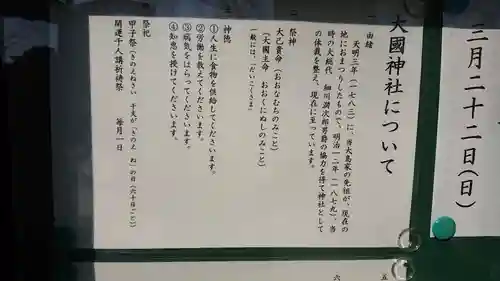 大國神社について
由緒
天明三年(一七八三)に、当大島家の先祖が、現在の
地におまつりしたもので、明治一二年(一八七九)、当
時の大総代 細川潤次郎男爵の協力を得て神社として
の体裁を整え、現在に至っています。
祭神
大己貴命(おおなむちのみこと)
(大國主命 おおくにぬしのみこと)
一般には、「だいこくさま」
神徳
①人生に食物を供給してくださいます。
②労働を教えてくださいます。
③病気をはらってくださいます。
④知恵を授けてくださいます。
祭祀
甲子祭(きのえねさい 干支が「きのえ ね」の日(六十日ごと)
開運千人講祈祷祭 毎月一日
三月二十二日(日)
五
六